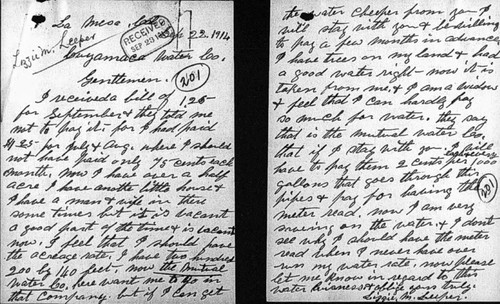 La Mesa, Cal
Sep 22. 1914
RECEIVED
SEP 23 1914
Lizzie M. Leeper
Cuyamaca Water Co.
Gentlemen.
201
I received a bill of 1.25
for September & they told me
not to pay it, for I had paid
$1.25 for July & Aug. where I should
not have paid only 75 cents each
month. Now I have over a half
acre I have another little house &
I have a man & wife in there
some times but it is vacant
a good part of the time & is vacant
now. I feel that I should have
the acreage rate. I have two hundred
200 by 140 feet. now the Mutual
Water Co. here want me to go in
that Company. but if I can get
the water cheaper from you I
will stay with you & be willing
to pay a few months in advance
I have trees on my land & had
a good water right now it is
taken from me, & I am a widow
& feel that I can hardly pay
so much for water. they say
that is the Mutual Water Co.
that if I stay with you I will
have to pay them 2 cents per
gallons that goes through this
pipes & pay for having the
meter read. now I am very
saving on the water & I dont
see why I should have the meter
read when I never have over
run my water rate. now please
let me know in regard to this
water business & oblige yours truly.
Lizzie M. Leeper.
201